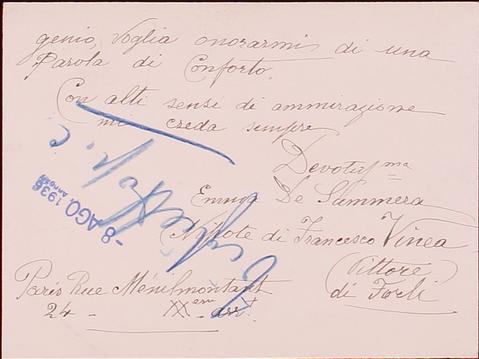 genio, Voglia onorarmi di una
Parola di Conforto.
Con alti sensi di ammirazione
mi creda sempre
Devotissma
Emma De Sammera
Nipote di Francesco Vinea
(Pittore
di Forlì
Paris Rue Ménilmontant
24 - XXem arrt.
-8 AGO. 1936